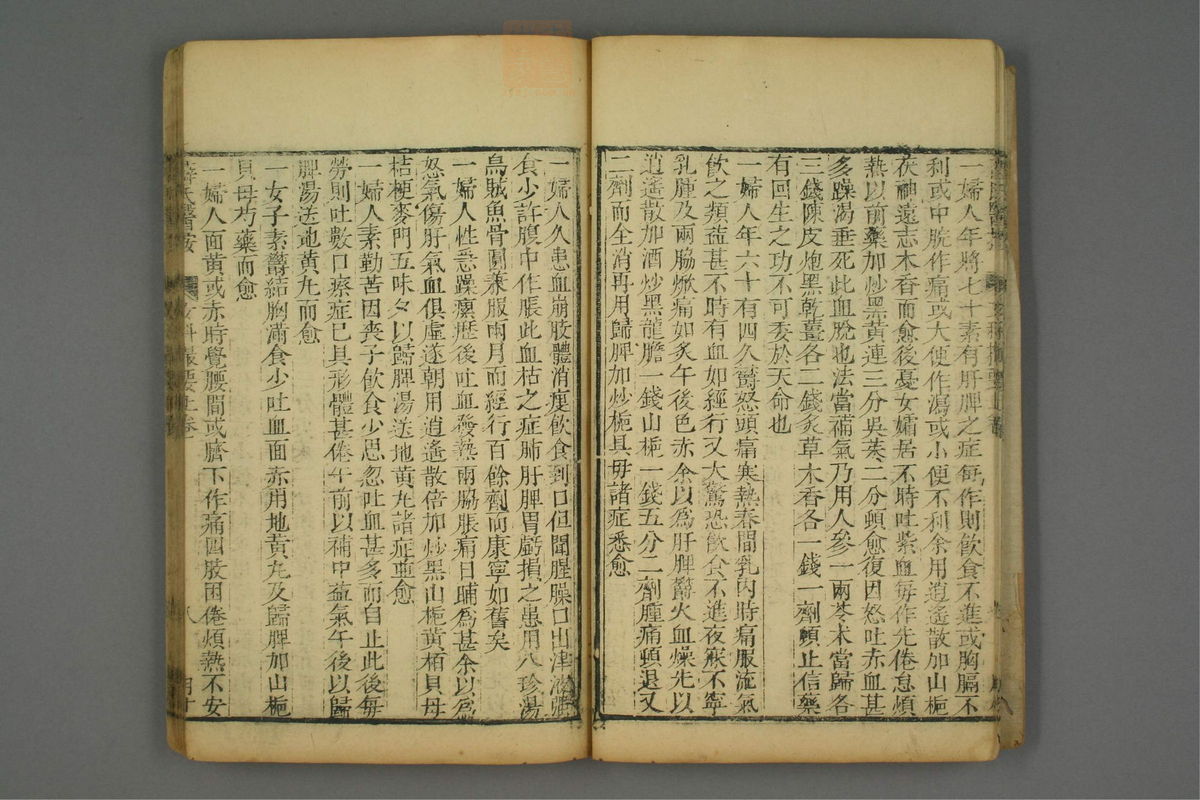 一婦人年將七十素有肝脾之症每作則飲食不進或胸膈不
利或中脘作痛或大便作瀉或小便不利余用逍遙散加山梔
茯神遠志木香而愈後憂女孀居不時吐紫血每作先倦怠煩
熱以前藥加炒黑黃連三分吳茱二分頓愈復因怒吐赤血甚
多躁渴垂死此血脫也法當補氣乃用人參一兩苓朮當歸各
三錢陳皮炮黑乾薑各二錢炙草木香各一錢一劑頓止信藥
有回生之功不可委於天命也
一婦人年六十有四久鬱怒頭痛寒熱春間乳內時痛服流氣
飲之類益甚不時有血如經行又大驚恐飲食不進夜寐不寧
乳腫及兩脇焮痛如炙午後色赤余以為肝脾鬱火血燥先以
逍遙散加酒炒黑龍膽一錢山梔一錢五分二劑腫痛頓退又
二劑而全消再用歸脾加炒梔貝母諸症悉愈
一婦人久患血崩肢體消瘦飲食到口但聞腥臊口出津液強
食少許腹中作脹此血枯之症肺肝脾胃虧損之患用八珍湯
烏賊魚骨圓兼服兩月而經行百餘劑而康寧如舊矣
一婦人性急躁瘰癧後吐血發熱兩脇脹痛日晡為甚余以為
怒氣傷肝氣血俱虛遂朝用逍遙散倍加炒黑山梔黃柏貝母
桔梗麥門五味夕以歸脾湯送地黃丸諸症並愈
一婦人素勤苦因喪子飲食少思忽吐血甚多而自止此後每
勞則吐數口瘵症已具形體甚倦午前以補中益氣午後以歸
脾湯送地黃丸而愈
一女子素鬱結胸滿食少吐血面赤用地黃丸及歸脾加山梔
貝母芍藥而愈
一婦人面黃或赤時覺腰間或臍下作痛四肢困倦煩熱不安
薛氏醫按 女科撮要上卷 八